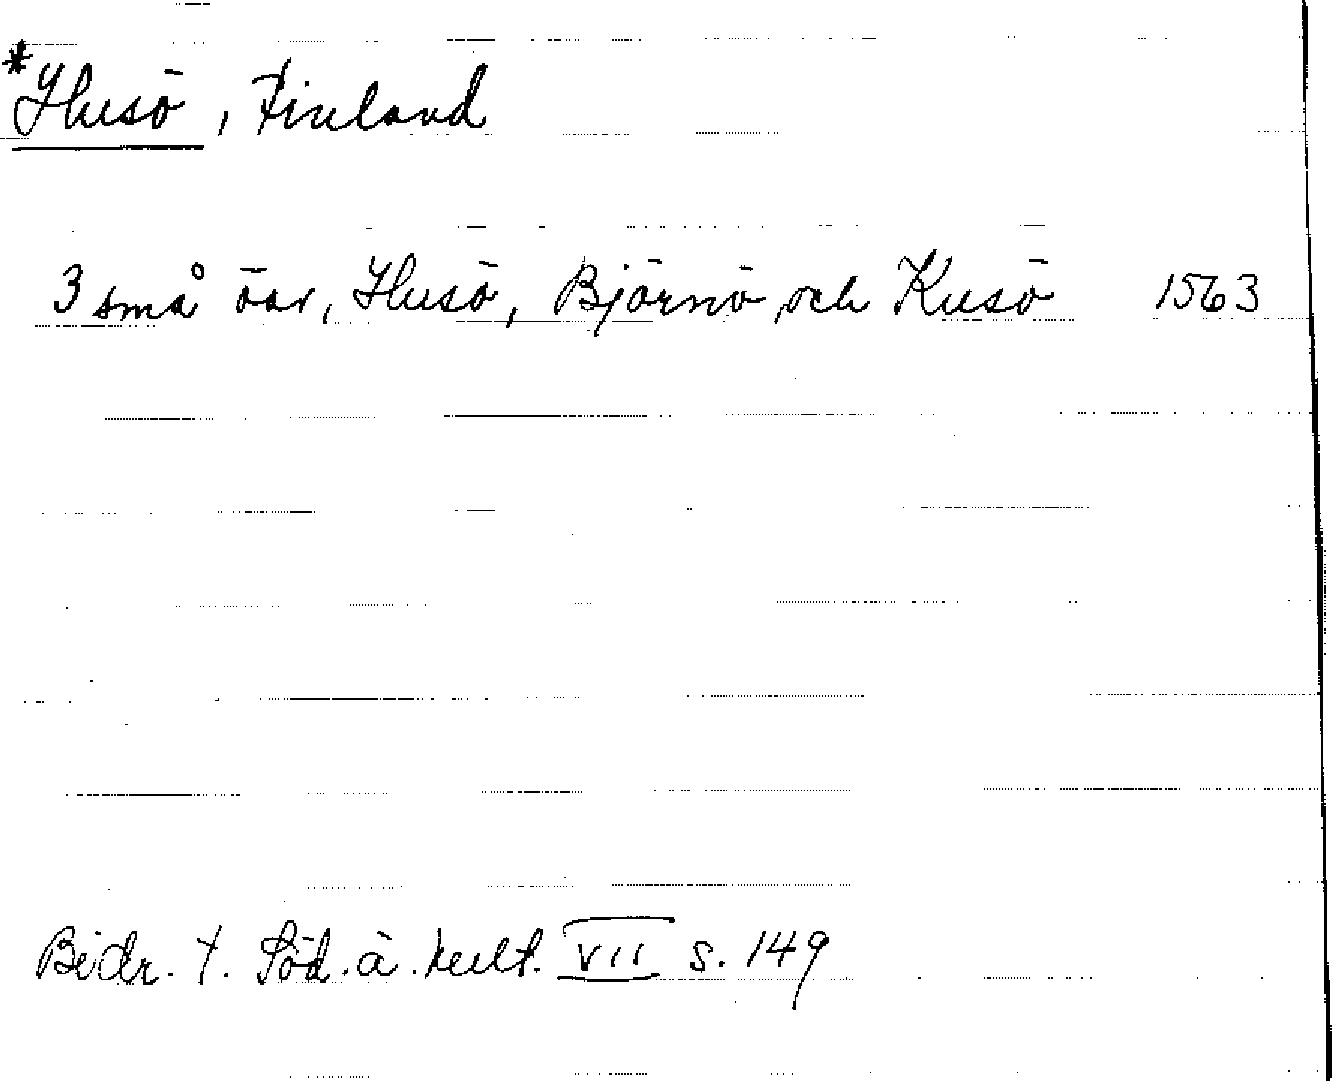 *Husö, Finland
3 små öar, Husö, Björnö och Kusö 1563
Bidr. t. Söd. ä. kult. VII s. 149